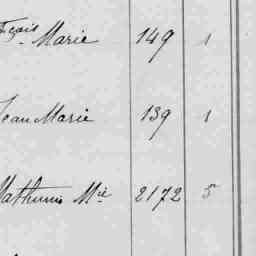 Fçais Marie 149 1
Jean Marie 139 1
Mathurin Mie 2172 5